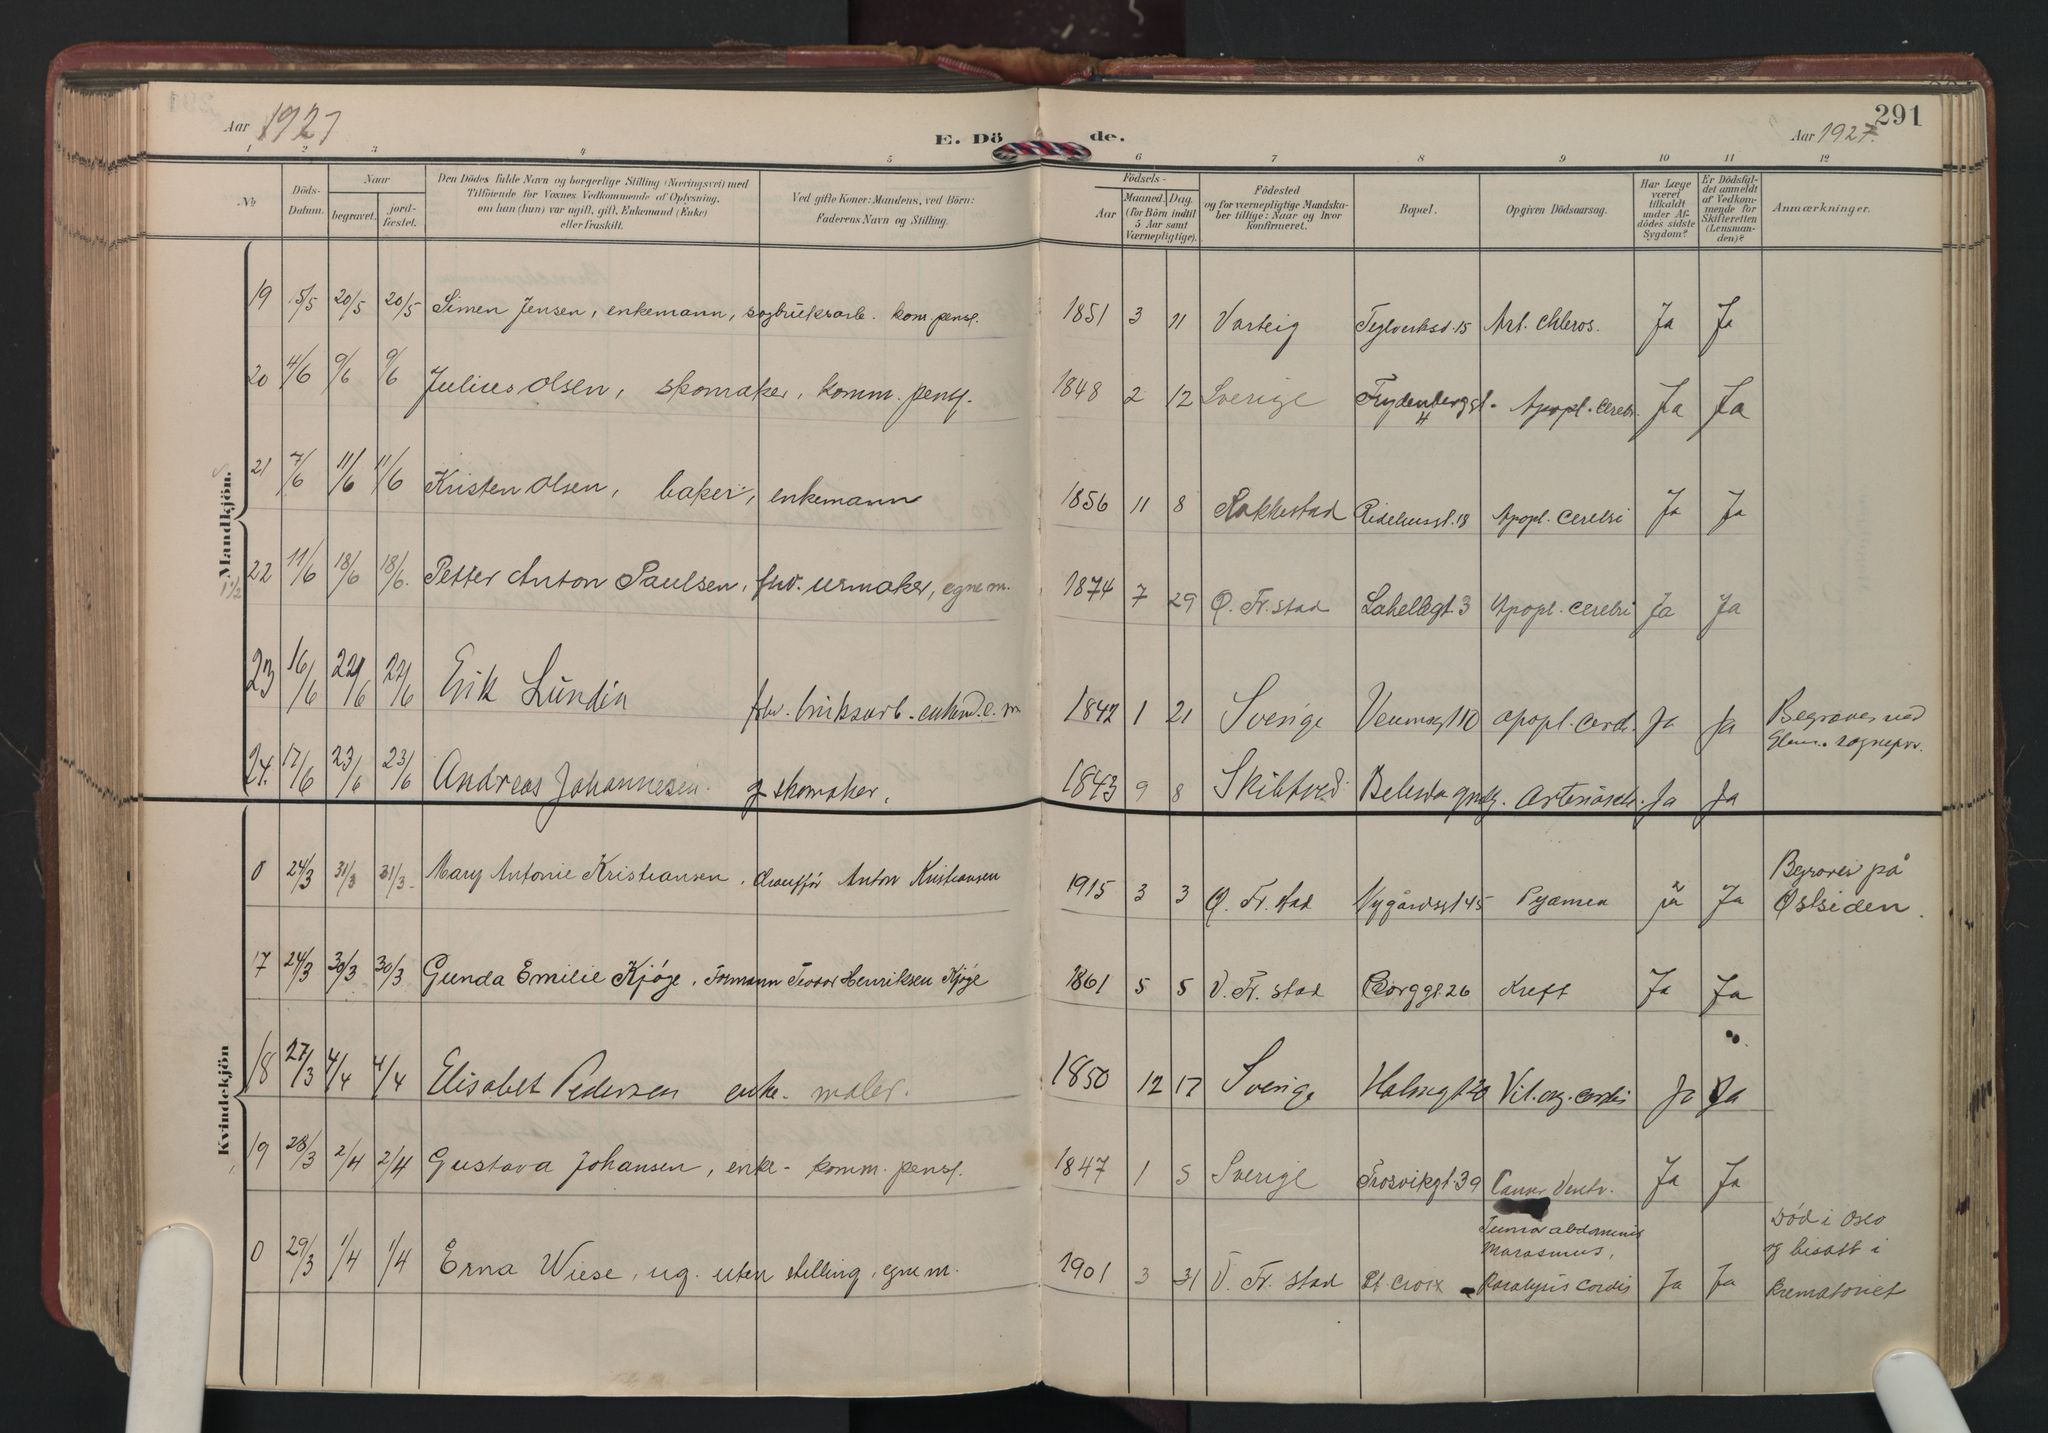 291
Aar 1927
E. Dö de.
Aar 1927.
1 2 3 4 5 6 7 8 9 10 11 12
No
Döds-Datum.
Naar
begravet.
jord-fæstet.
Den Dödes fulde Navn og borgerlige Stilling (Næringsvei) med
Tilföiende for Voxnes Vedkommende af Oplysning,
om han (hun) var ugift, gift, Enkemand (Enke)
eller fraskilt.
Ved gifte Koner: Mandens, ved Börn:
Faderens Navn og Stilling.
Födsels-
Aar
Maaned. Dag.
(for Börn indtil
5 Aar samt
Værnepligtige).
Födested
og for værnepligtige Mandska-
ber tillige: Naar og hvor
konfirmeret.
Bopæl.
Opgiven Dödsaarsag.
Har Læge
været
tilkaldt
under Af-
dödes sidste
Sygdom?
Er Dödsfal-
det anmeldt
af Vedkom-
mende for
Skifteretten
(Lensman-
den)?
Anmærkninger.
Mandkjön.
19 5/5 20/5 20/5 Simen Jensen, enkemann, sagbruksarb. kom. pens. 1851 3 11 Varteig Teglverksv. 15 Art. chleros. Ja Ja
20 4/6 9/6 9/6 Julius Olsen, skomaker, komm. pens. 1848 2 12 Sverige Frydenberggt. 4 Apopl. cerebr. Ja Ja
21 7/6 11/6 11/6 Kristen Olsen, baker, enkemann 1856 11 8 Rakkestad Ridehusgt. 18 Apopl. cerebri Ja Ja
22 11/6 18/6 18/6. Petter Anton Paulsen, fhv. urmaker, egne m. 1874 7 29 Ø. Fr. stad Lahellegt. 3 Apopl. cerebri Ja Ja
23 16/6 22/6 22/6 Erik Lundin fhv. bruksarb. enkem. e. m 1842 1 21 Sverige Veumsgt 10 apopl. cerebr. Ja Ja Begraves ved
Glem. sognepr.
24. 17/6 23/6 23/6 Andreas Johannesen. g skomaker. 1843 9 8 Skibtved Ja Ja
Kvindekjön
0 24/3 31/3 31/3 Mary Antonie Kristiansen, chauffør Anton Kristiansen 1915 3 3 Ø. Fr. stad Nygårdsgt 45 Pyämia ja Ja Begraves på
Østsiden.
17 24/3 30/3 30/3 Gunda Emilie Kjøge. Formann Teodor Henriksen Kjøge 1861 5 5 V. Fr. stad Borggt. 26 Kreft Ja Ja
18 27/3 4/4 4/4 Elisabet Pedersen enke. maler. 1850 12 17 Sverige Holmegt 20 Vit. org. cordis Ja Ja
19 28/3 2/4 2/4 Gustava Johansen, enke - komm. pens. 1847 1 5 Sverige Trosvikgt. 39 Cancer Ventr. Ja Ja
0 29/3 1/4 1/4 Erna Wiese, ug. uten stilling, egne m. 1901 3 31 V. Fr. stad St. Croix Tumor abdominis
Marasmus,
Paralysis cordis Ja Ja Død i Oslo
og bisatt i
krematoriet